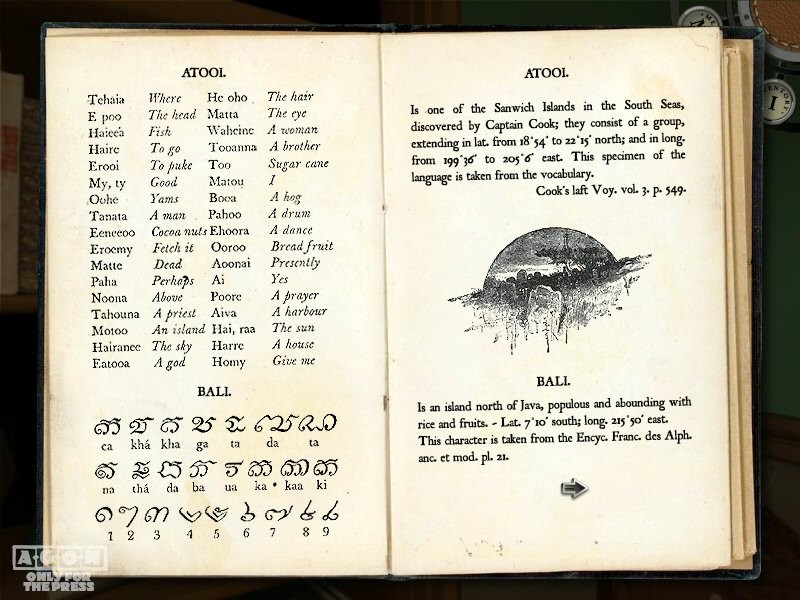 ATOOI.
Tehaia Where He oho The hair
E poo The head Matta The eye
Haieea Fish Waheine A woman
Haire To go Tooanna A brother
Erooi To puke Too Sugar cane
My, ty Good Matou I
Oohe Yams Booa A hog
Tanata A man Pahoo A drum
Eeneeoo Cocoa nuts Ehoora A dance
Eroemy Fetch it Ooroo Bread fruit
Matte Dead Aoonai Presently
Paha Perhaps Ai Yes
Noona Above Poore A prayer
Tahouna A priest Aiva A harbour
Motoo An island Hai, raa The sun
Hairanee The sky Harre A house
Eatooa A god Homy Give me
BALI.
ca khá kha ga ta da ta
na thá da ba ua ka • kaa ki
1 2 3 4 5 6 7 8 9
ATOOI.
Is one of the Sanwich Islands in the South Seas,
discovered by Captain Cook; they consist of a group,
extending in lat. from 18°54' to 22°15' north; and in long.
from 199°36' to 205°6' east. This specimen of the
language is taken from the vocabulary.
Cook's laft Voy. vol. 3. p. 549.
BALI.
Is an island north of Java, populous and abounding with
rice and fruits. - Lat. 7°10' south; long. 215°50' east.
This character is taken from the Encyc. Franc. des Alph.
anc. et mod. pl. 21.
I
A·G·O·N
ONLY FOR
THE PRESS